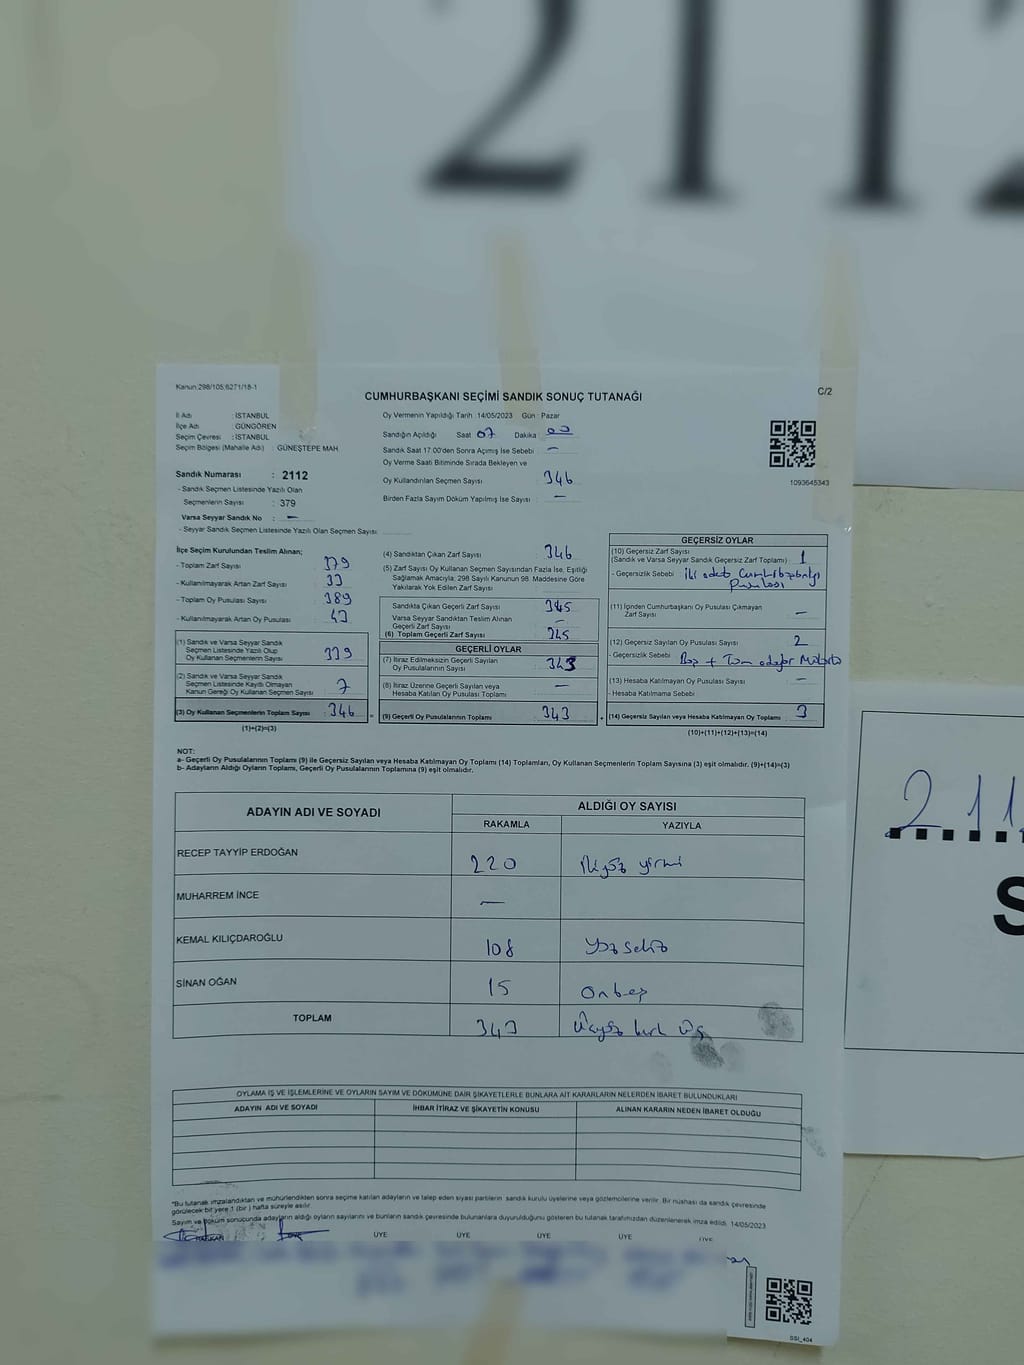 2112
Kanun:298/105;6271/18-1
CUMHURBAŞKANI SEÇİMİ SANDIK SONUÇ TUTANAĞI
C/2
İl Adı : İSTANBUL
İlçe Adı : GÜNGÖREN
Seçim Çevresi : İSTANBUL
Seçim Bölgesi (Mahalle Adı) : GÜNEŞTEPE MAH
Sandık Numarası : 2112
- Sandık Seçmen Listesinde Yazılı Olan
Seçmenlerin Sayısı : 379
Varsa Seyyar Sandık No : —
- Seyyar Sandık Seçmen Listesinde Yazılı Olan Seçmen Sayısı
Oy Vermenin Yapıldığı Tarih :14/05/2023 Gün : Pazar
Sandığın Açıldığı Saat 07 Dakika 00
Sandık Saat 17:00'den Sonra Açımış İse Sebebi —
Oy Verme Saati Bitiminde Sırada Bekleyen ve
Oy Kullandırılan Seçmen Sayısı 346
Birden Fazla Sayım Döküm Yapılmış İse Sayısı —
1093645343
İlçe Seçim Kurulundan Teslim Alınan;
- Toplam Zarf Sayısı 379
- Kullanılmayarak Artan Zarf Sayısı 33
- Toplam Oy Pusulası Sayısı 389
- Kullanılmayarak Artan Oy Pusulası 43
(1) Sandık ve Varsa Seyyar Sandık
Seçmen Listesinde Yazılı Olup
Oy Kullanan Seçmenlerin Sayısı 339
(2) Sandık ve Varsa Seyyar Sandık
Seçmen Listesinde Kayıtlı Olmayan
Kanun Gereği Oy Kullanan Seçmen Sayısı 7
(3) Oy Kullanan Seçmenlerin Toplam Sayısı 346
(1)+(2)=(3)
(4) Sandıktan Çıkan Zarf Sayısı 346
(5) Zarf Sayısı Oy Kullanan Seçmen Sayısından Fazla İse, Eşitliği
Sağlamak Amacıyla; 298 Sayılı Kanunun 98. Maddesine Göre
Yakılarak Yok Edilen Zarf Sayısı
Sandıkta Çıkan Geçerli Zarf Sayısı 345
Varsa Seyyar Sandıktan Teslim Alınan
Geçerli Zarf Sayısı —
(6) Toplam Geçerli Zarf Sayısı 345
GEÇERLİ OYLAR
(7) İtiraz Edilmeksizin Geçerli Sayılan
Oy Pusulalarının Sayısı 343
(8) İtiraz Üzerine Geçerli Sayılan veya
Hesaba Katılan Oy Pusulası Toplamı —
= (9) Geçerli Oy Pusulalarının Toplamı 343
GEÇERSİZ OYLAR
(10) Geçersiz Zarf Sayısı
(Sandık ve Varsa Seyyar Sandık Geçersiz Zarf Toplamı) 1
- Geçersizlik Sebebi İki adet Cumhurbaşkanlığı
Pusulası
(11) İçinden Cumhurbaşkanı Oy Pusulası Çıkmayan
Zarf Sayısı —
(12) Geçersiz Sayılan Oy Pusulası Sayısı 2
- Geçersizlik Sebebi Boş + Tüm adaylar Mühürlü
(13) Hesaba Katılmayan Oy Pusulası Sayısı —
- Hesaba Katılmama Sebebi
+ (14) Geçersiz Sayılan veya Hesaba Katılmayan Oy Toplamı 3
(10)+(11)+(12)+(13)=(14)
NOT:
a- Geçerli Oy Pusulalarının Toplamı (9) ile Geçersiz Sayılan veya Hesaba Katılmayan Oy Toplamı (14) Toplamları, Oy Kullanan Seçmenlerin Toplam Sayısına (3) eşit olmalıdır. (9)+(14)=(3)
b- Adayların Aldığı Oyların Toplamı, Geçerli Oy Pusulalarının Toplamına (9) eşit olmalıdır.
ADAYIN ADI VE SOYADI
ALDIĞI OY SAYISI
RAKAMLA YAZIYLA
RECEP TAYYİP ERDOĞAN 220 İkiyüz yirmi
MUHARREM İNCE —
KEMAL KILIÇDAROĞLU 108 Yüzsekiz
SİNAN OĞAN 15 Onbeş
TOPLAM 343 Üçyüz kırk üç
OYLAMA İŞ VE İŞLEMLERİNE VE OYLARIN SAYIM VE DÖKÜMÜNE DAİR ŞİKAYETLERLE BUNLARA AİT KARARLARIN NELERDEN İBARET BULUNDUKLARI
ADAYIN ADI VE SOYADI İHBAR İTİRAZ VE ŞİKAYETİN KONUSU ALINAN KARARIN NEDEN İBARET OLDUĞU
*Bu tutanak imzalandıktan ve mühürlendikten sonra seçime katılan adayların ve talep eden siyasi partilerin sandık kurulu üyelerine veya gözlemcilerine verilir. Bir nüshası da sandık çevresinde
görülecek bir yere 1 (bir ) hafta süreyle asılır.
Sayım ve döküm sonucunda adayların aldığı oyların sayılarını ve bunların sandık çevresinde bulunanlara duyurulduğunu gösteren bu tutanak tarafımızdan düzenlenerek imza edildi. 14/05/2023
BAŞKAN ÜYE ÜYE ÜYE ÜYE ÜYE ÜYE
SSI_404
211
S